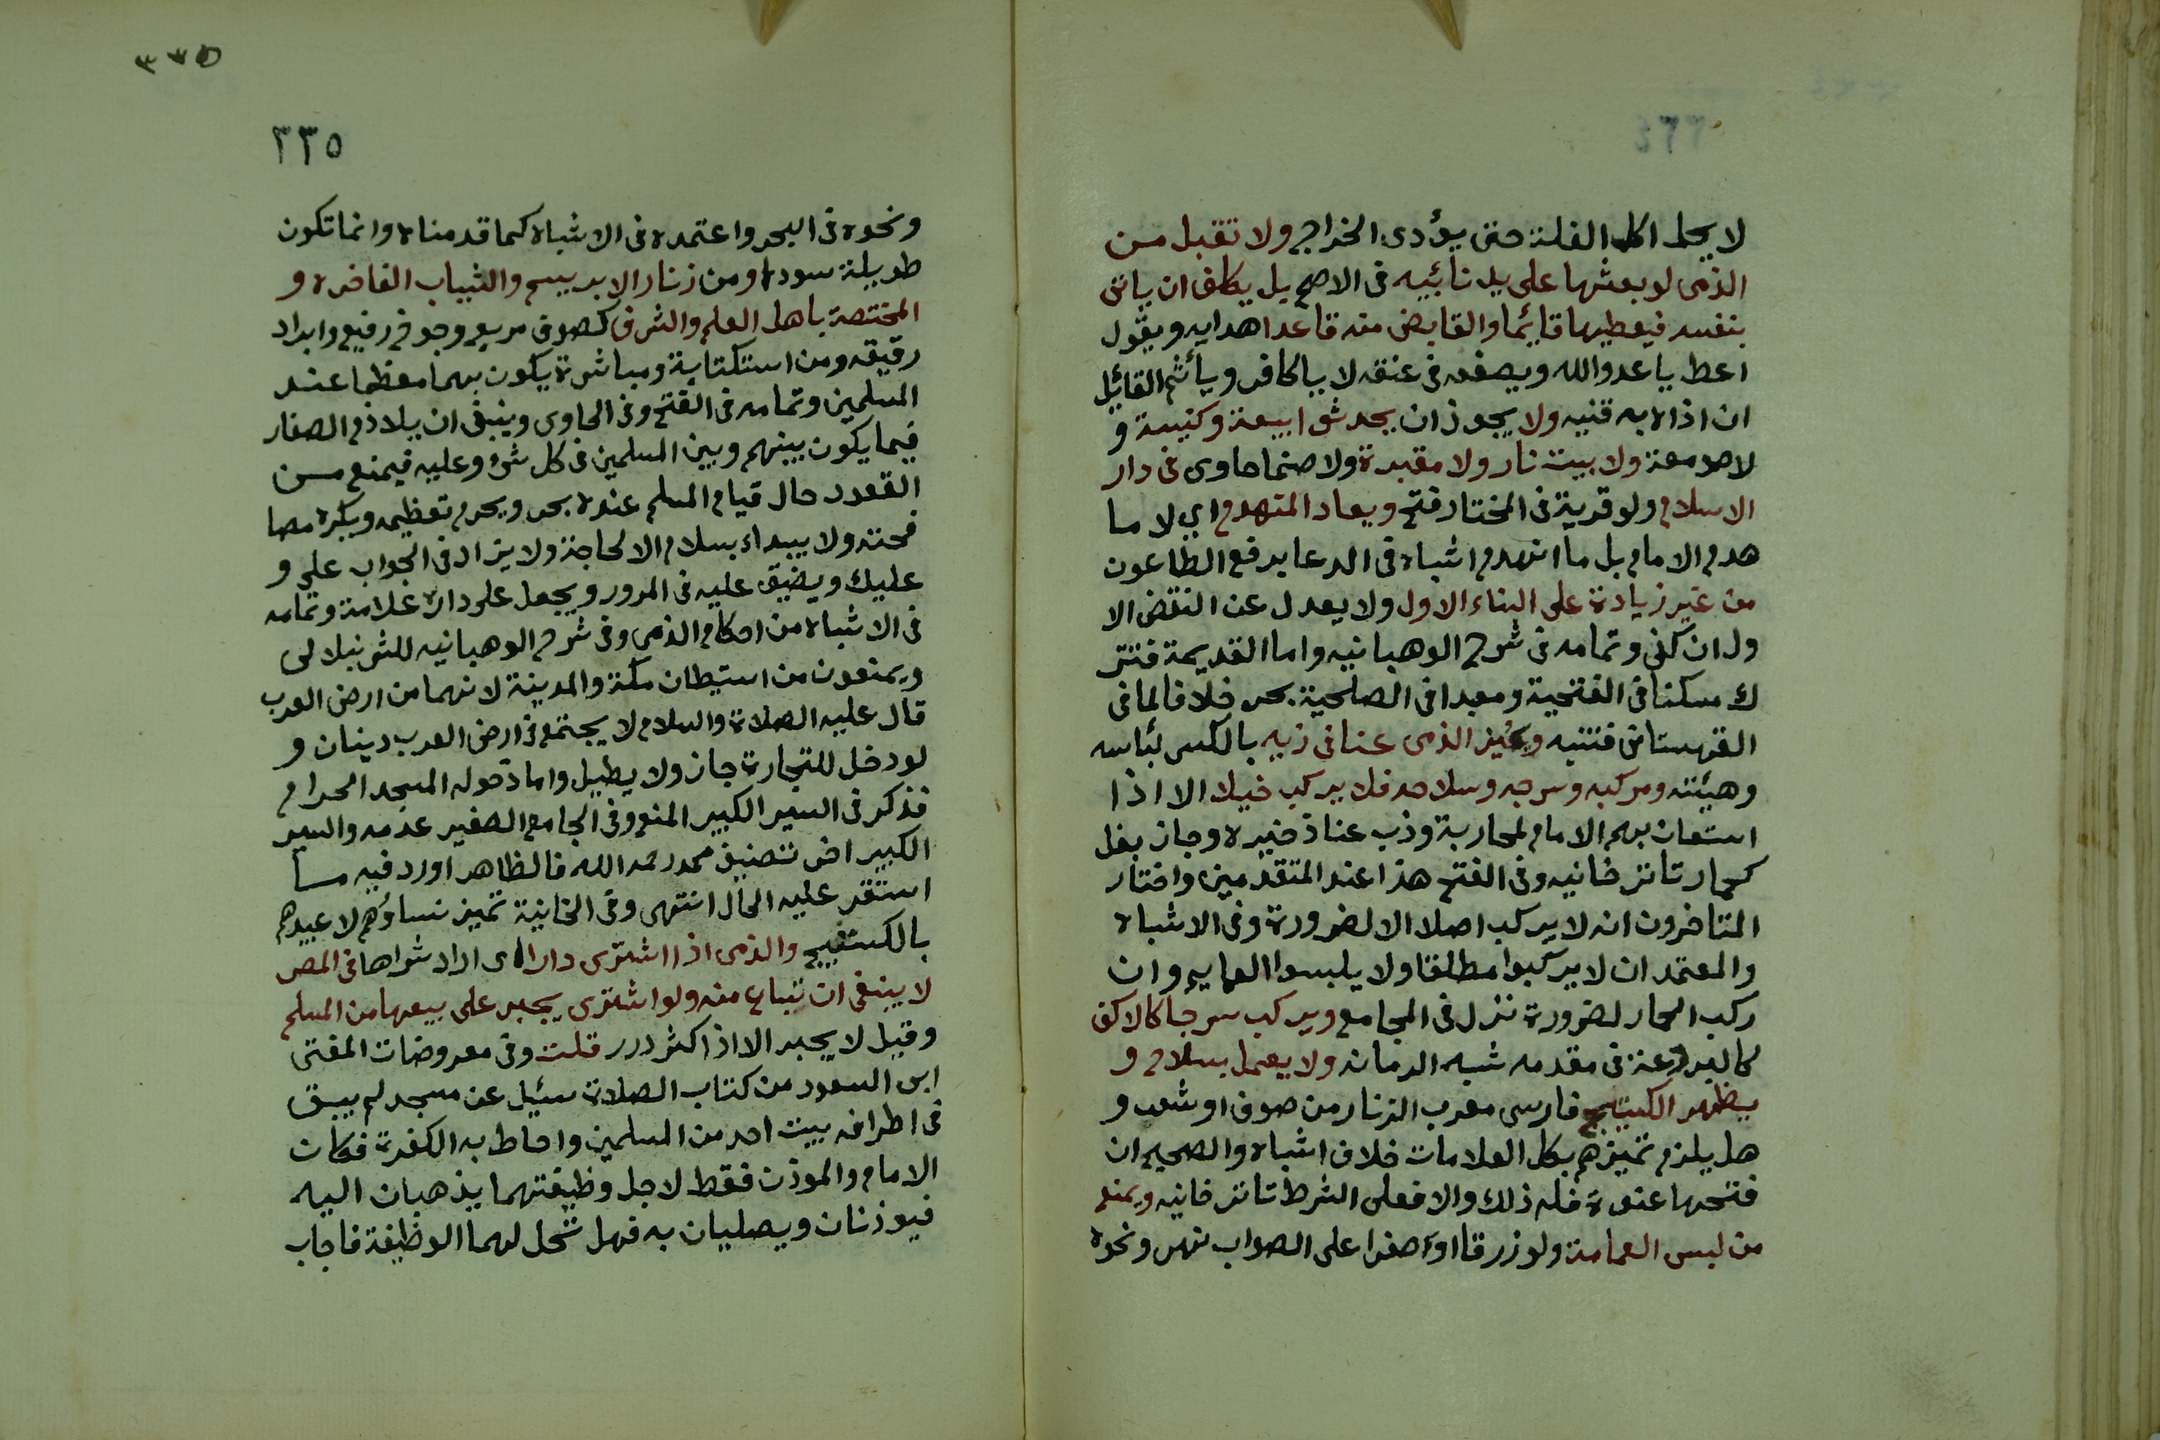 لا يحل اكل الغلة حتى يؤدى الخراج ولا تقبل من
الذمى لو بعثها على يد نائبه فى الاصح بل يكلف ان ياتى
بنفسه فيعطيها قايما والقابض منه قاعدا هدايه ويقول
اعط يا عدو الله ويصفعه فى عنقه لا يا كافر وياثم القائل
ان اذاه به قنيه ولا يجوز ان يحدثو ابيعة وكنيسة و
لا صومعة ولا بيت نار ولا مقبرة ولا صنما حاوى فى دار
الاسلام ولو قرية فى المختار فتح ويعاد المتهدم اي لا ما
هدم الامام بل ما انهدم اشباه فى الدعا برفع الطاعون
من غير زيادة على البناء الاول ولا يعدل عن النقض الا
ول ان كفى وتمامه فى شرح الوهبانيه واما القديمة فتتر
ك مسكنا فى الفتحية ومعبدا فى الصلحية بحر خلافا لما فى
القهستانى فتنبه ويميز الذمى عنا فى زيه بالكسر لباسه
وهيئته ومركبه وسرجه وسلاحه فلا يركب خيلا الا اذا
استعان بهم الامام لمحاربة وذب عنا ذخيره وجاز بغل
كحمار تاترخانيه وفى الفتح هذا عند المتقدمين واختار
المتاخرون انه لا يركب اصلا الا لضرورة وفى الاشباه
والمعتمد ان لا يركبوا مطلقا ولا يلبسوا العمايم وان
ركب الحمار لضرورة نزل فى المجامع ويركب سرجا كالاكف
كالبردعة فى مقدمه شبه الرمانه ولا يعمل بسلاح و
يظهر الكستيج فارسى معرب الزنار من صوف او شعر و
هل يلزم تميزهم بكل العلامات خلاف اشباه والصحيح ان
فتحها عنوة فله ذلك والا فعلى الشرط تاترخانيه ويمنع
من لبس العمامة ولو زرقا او صفرا على الصواب نهر ونحوه
٣٣٥
٣٣٥
ونحوه فى البحر واعتمده فى الاشباه كما قدمناه وانما تكون
طويلة سودا ومن زنار الابريسم والثياب الفاخره و
المختصة باهل العلم والشرف كصوف مربع وجوخ رفيع وابراد
رقيقه ومن استكتابة ومباشرة يكون بهما معظما عند
المسلمين وتمامه فى الفتح وفى الحاوى وينبغى ان يلازم الصغار
فيما يكون بينهم وبين المسلمين فى كل شئ وعليه فيمنع من
القعود حال قيام المسلم عنده بحر ويحرم تعظيمه ويكره مصا
فحته ولا يبداء بسلام الا لحاجة ولا يزاد فى الجواب على و
عليك ويضيق عليه فى المرور ويجعل على داره علامة وتمامه
فى الاشباه من احكام الذمى وفى شرح الوهبانيه للشرنبلالى
ويمنعون من استيطان مكة والمدينة لانهما من ارض العرب
قال عليه الصلاة والسلام لا يجتمع فى ارض العرب دينان و
لو دخل للتجارة جاز ولا يطيل واما دخوله المسجد الحرام
فذكر فى السير الكبير المنع وفى الجامع الصغير عدمه والسير
الكبير اخر تصنيف محمد رحمه الله فالظاهر اورد فيه ما
استقر عليه الحال انتهى وفى الخانية تميز نساؤهم لا عبيدهم
بالكستيج والذمى اذا اشترى دارا اى اراد شراها فى المصر
لا ينبغى ان تباع منه ولو اشترى يجبر على بيعها من المسلم
وقيل لا يجبر الا اذا كثر درر قلت وفى معروضات المفتى
ابى السعود من كتاب الصلاة سئيل عن مسجد لم يبق
فى اطرافه بيت احد من المسلمين واحاط به الكفرة فكان
الامام والموذن فقط لاجل وظيفتهما يذهبان اليه
فيوذنان ويصليان به فهل تحل لهما الوظيفة فاجاب